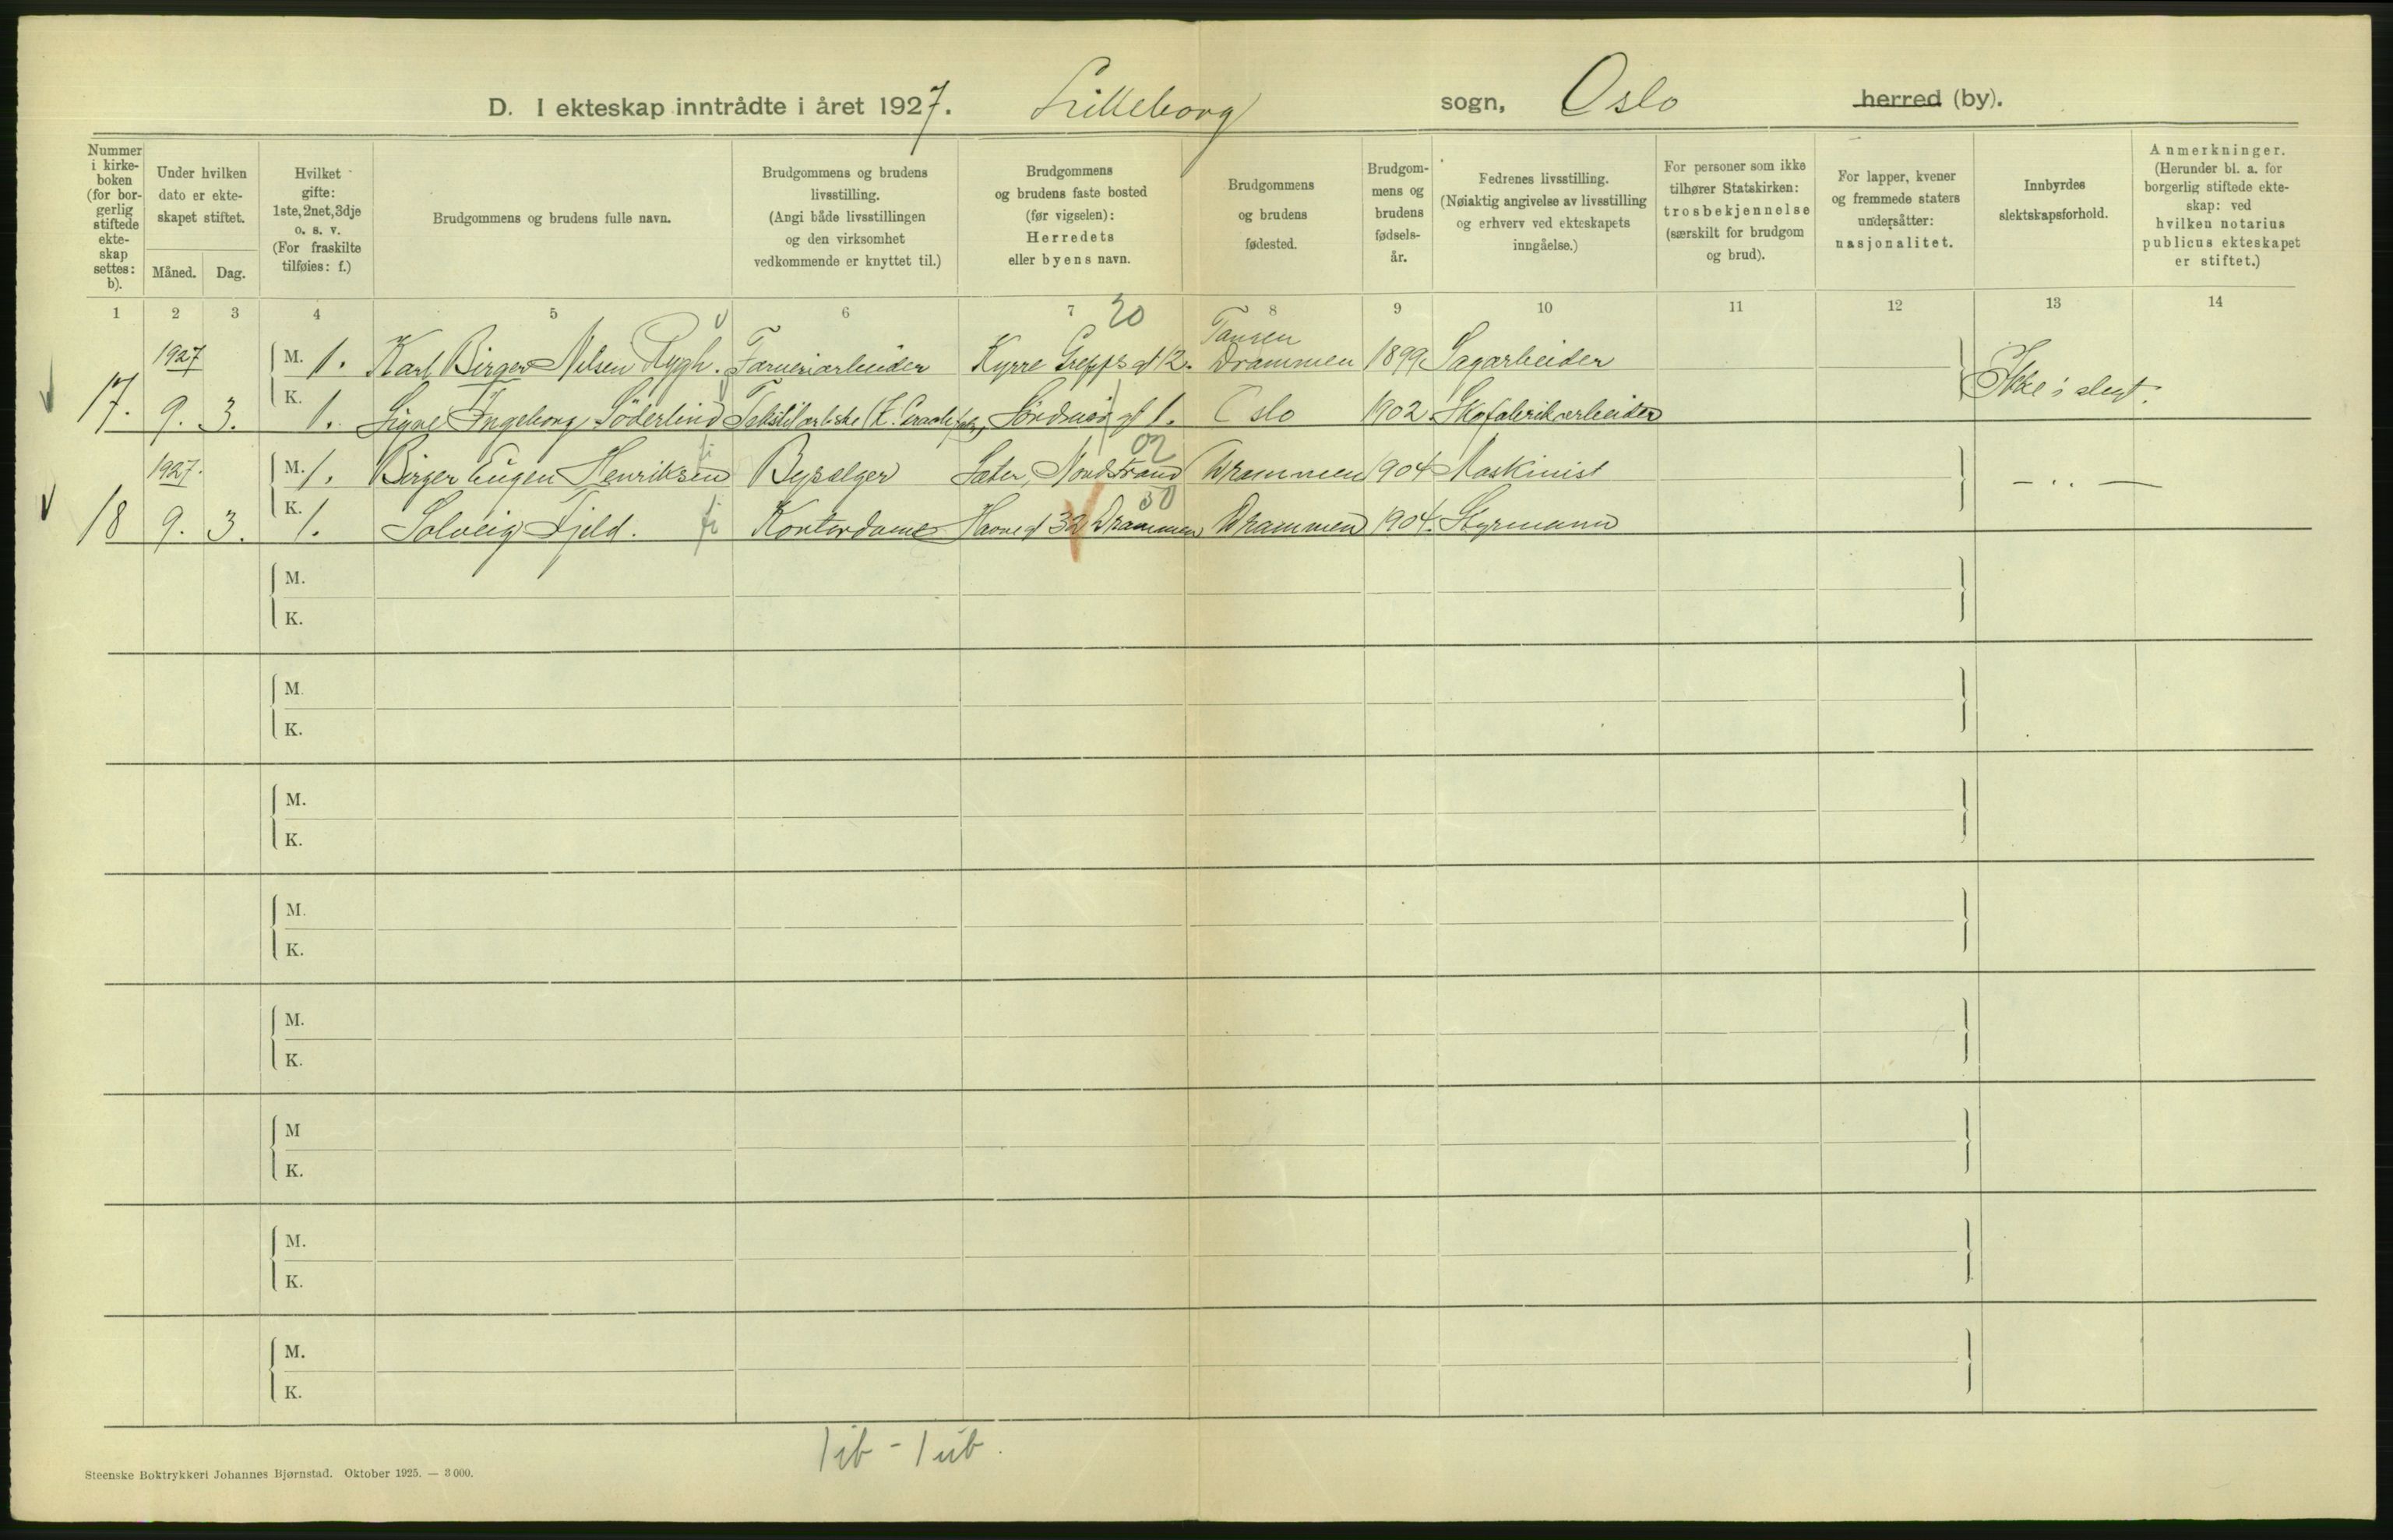 D. I ekteskap inntrådte i året 1927. Lilleborg sogn, Oslo herred (by).
Nummer i kirke-boken (for bor-gerlig stiftede ekte-skap settes: b).
Under hvilken dato er ekte-skapet stiftet.
Måned. Dag.
Hvilket gifte: 1ste, 2net, 3dje o. s. v. (For fraskilte tilføies: f.)
Brudgommens og brudens fulle navn.
Brudgommens og brudens livsstilling. (Angi både livsstillingen og den virksomhet vedkommende er knyttet til.)
Brudgommens og brudens faste bosted (før vigselen): Herredets eller byens navn.
Brudgommens og brudens fødested.
Brudgom-mens og brudens fødsels-år.
Fedrenes livsstilling. (Nøiaktig angivelse av livsstilling og erhverv ved ekteskapets inngåelse.)
For personer som ikke tilhører Statskirken: trosbekjennelse (særskilt for brudgom og brud).
For lapper, kvener og fremmede staters undersåtter: nasjonalitet.
Innbyrdes slektskapsforhold.
Anmerkninger. (Herunder bl. a. for borgerlig stiftede ekte-skap: ved hvilken notarius publicus ekteskapet er stiftet.)
1 2 3 4 5 6 7 8 9 10 11 12 13 14
20
1927 M. 1. Karl Birger Nilsen Rygh. Kyrre Grepps gt 12. Drammen 1899. Sagarbeider
17. 9. 3. K. 1. Signe Ingeborg Söderlind gt 1. Oslo 1902. Skofabrikarbeider Ikke i slegt.
1927. M. 1. Birger Eugen Henriksen Bysælger Sæter, Nordstrand Drammen 1904 Maskinist
18 9. 3. K. 1. Solveig Fjeld. Kontordame Havnegt 32 Drammen Drammen 1904. Styrmann — .. —
M.
K.
M.
K.
M.
K.
M.
K.
M.
K.
M
K.
M.
K.
M.
K.
1 ib - 1 ub.
Steenske Boktrykkeri Johannes Bjørnstad. Oktober 1925. — 3 000.